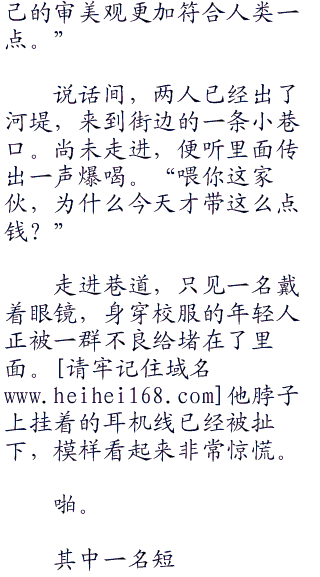 己的审美观更加符合人类一
点。”
说话间，两人已经出了
河堤，来到街边的一条小巷
口。尚未走进，便听里面传
出一声爆喝。“喂你这家
伙，为什么今天才带这么点
钱？”
走进巷道，只见一名戴
着眼镜，身穿校服的年轻人
正被一群不良给堵在了里
面。[请牢记住域名
www.heihei168.com]他脖子
上挂着的耳机线已经被扯
下，模样看起来非常惊慌。
啪。
其中一名短